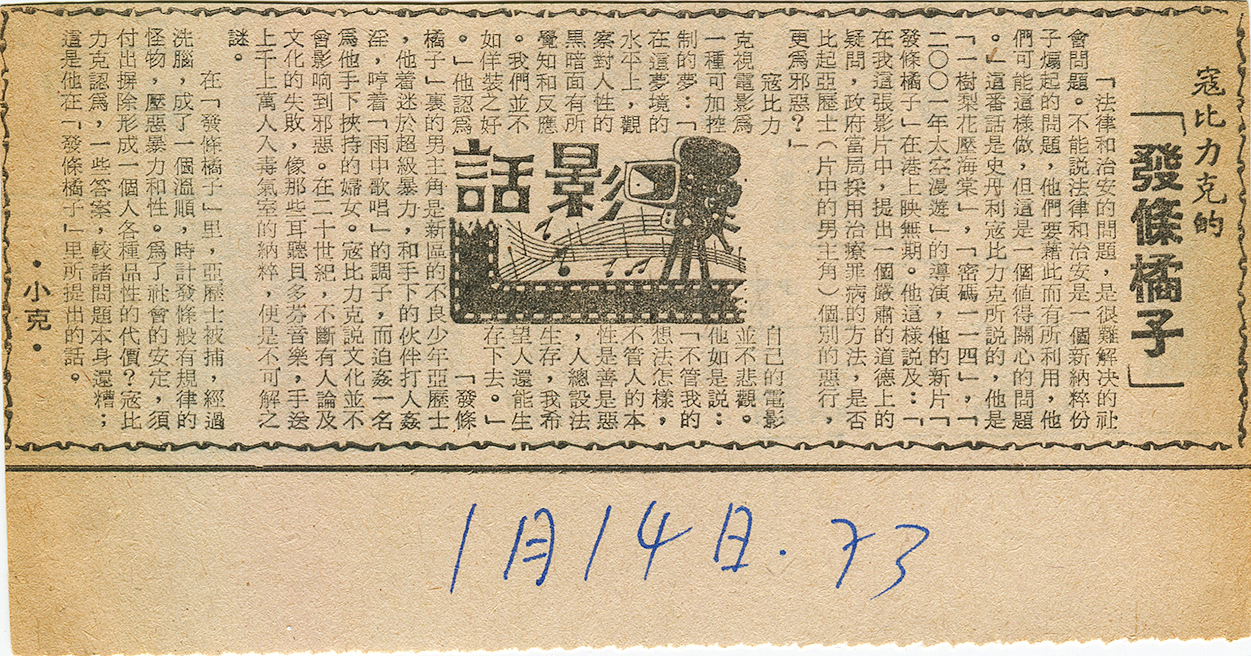 寇比力克的
「發條橘子」
「法律和治安的問題,是很難解決的社
會問題。不能説法律和治安是一個新納粹份
子煽起的問題,他們要藉此而有所利用,他
們可能這樣做,但這是一個値得關心的問題
。」這番話是史丹利寇比力克所説的,他是
「一樹梨花壓海棠」,「密碼一一四」,「
二〇〇一年太空漫遊」的導演,他的新片「
發條橘子」在港上映無期。他這樣説及:「
在我這張影片中,提出一個嚴肅的道德上的
疑問,政府當局採用治療罪病的方法,是否
比起亞歷士(片中的男主角)個別的惡行,
更爲邪惡?」
寇比力
克視電影爲
一種可加控
制的夢:「
在這夢境的
水平上,觀
察對人性的
黑暗面有所
覺知和反應
。我們並不
如佯裝之好
。」他認爲
影話
自己的電影
並不悲觀。
他如是説:
「不管我的
想法怎樣,
不管人的本
性是善是惡
,人總設法
生存,我希
望人還能生
存下去。」
「發條
橘子」裏的男主角是新區的不良少年亞歷士
,他着迷於超級暴力,和手下的伙伴打人姦
淫,哼着「雨中歌唱」的調子,而迫姦一名
爲他手下挾持的婦女。寇比力克説文化並不
會影响到邪惡。在二十世紀,不斷有人論及
文化的失敗,像那些耳聽貝多芬音樂,手送
上千上萬人入毒氣室的納粹,便是不可解之
謎。
在「發條橘子」里,亞歷士被捕,經過
洗腦,成了一個溫順,時計發條般有規律的
怪物,壓惡暴力和性。爲了社會的安定,須
付出摒除形成一個人各種品性的代價?寇比
力克認爲,一些答案,較諸問題本身還糟;
這是他在「發條橘子」里所提出的話。
·小克·
1月14日.73